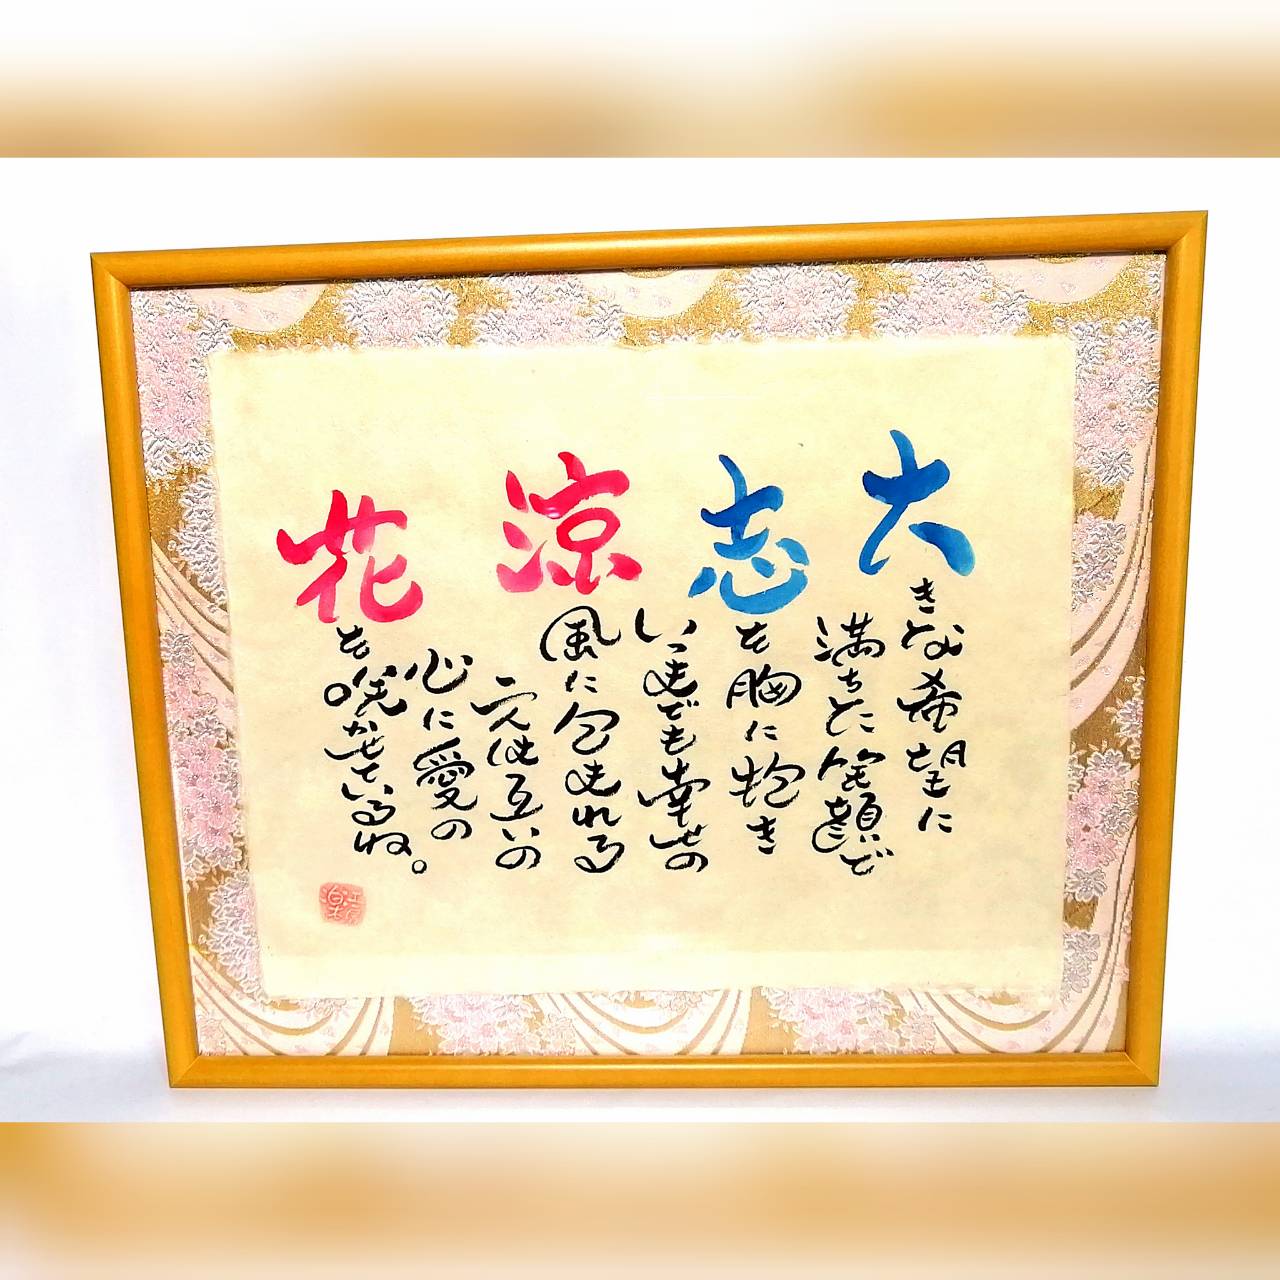 大きな希望に
満ちた笑顔で
志を胸に抱き
いつまでも幸せの
涼風に包まれる
二人は互いの
心に愛の
花を咲かせているね。